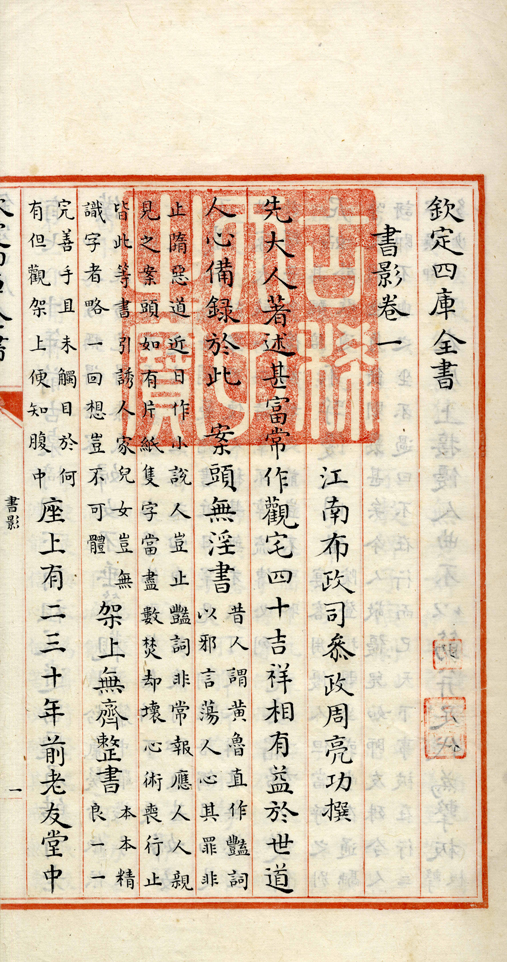 欽定四庫全書
書影卷一
江南布政司叅政周亮功撰
先大人著述甚富常作觀宅四十吉祥相有益於世道
人心備錄於此　案頭無淫書
昔人謂黃魯直作豔詞
以邪言蕩人心其罪非
止墮惡道近日作小說人豈止豔詞非常報應人人親
見之案頭如有片紙隻字當盡數焚却壞心術喪行止
皆此等書引誘人家兒女豈無
識字者略一回想豈不可體
架上無齊整書
本本精
良一一
完善手且未觸目於何
有但觀架上便知腹中
座上有二三十年前老友堂中
書影
一
古稀天子之寶